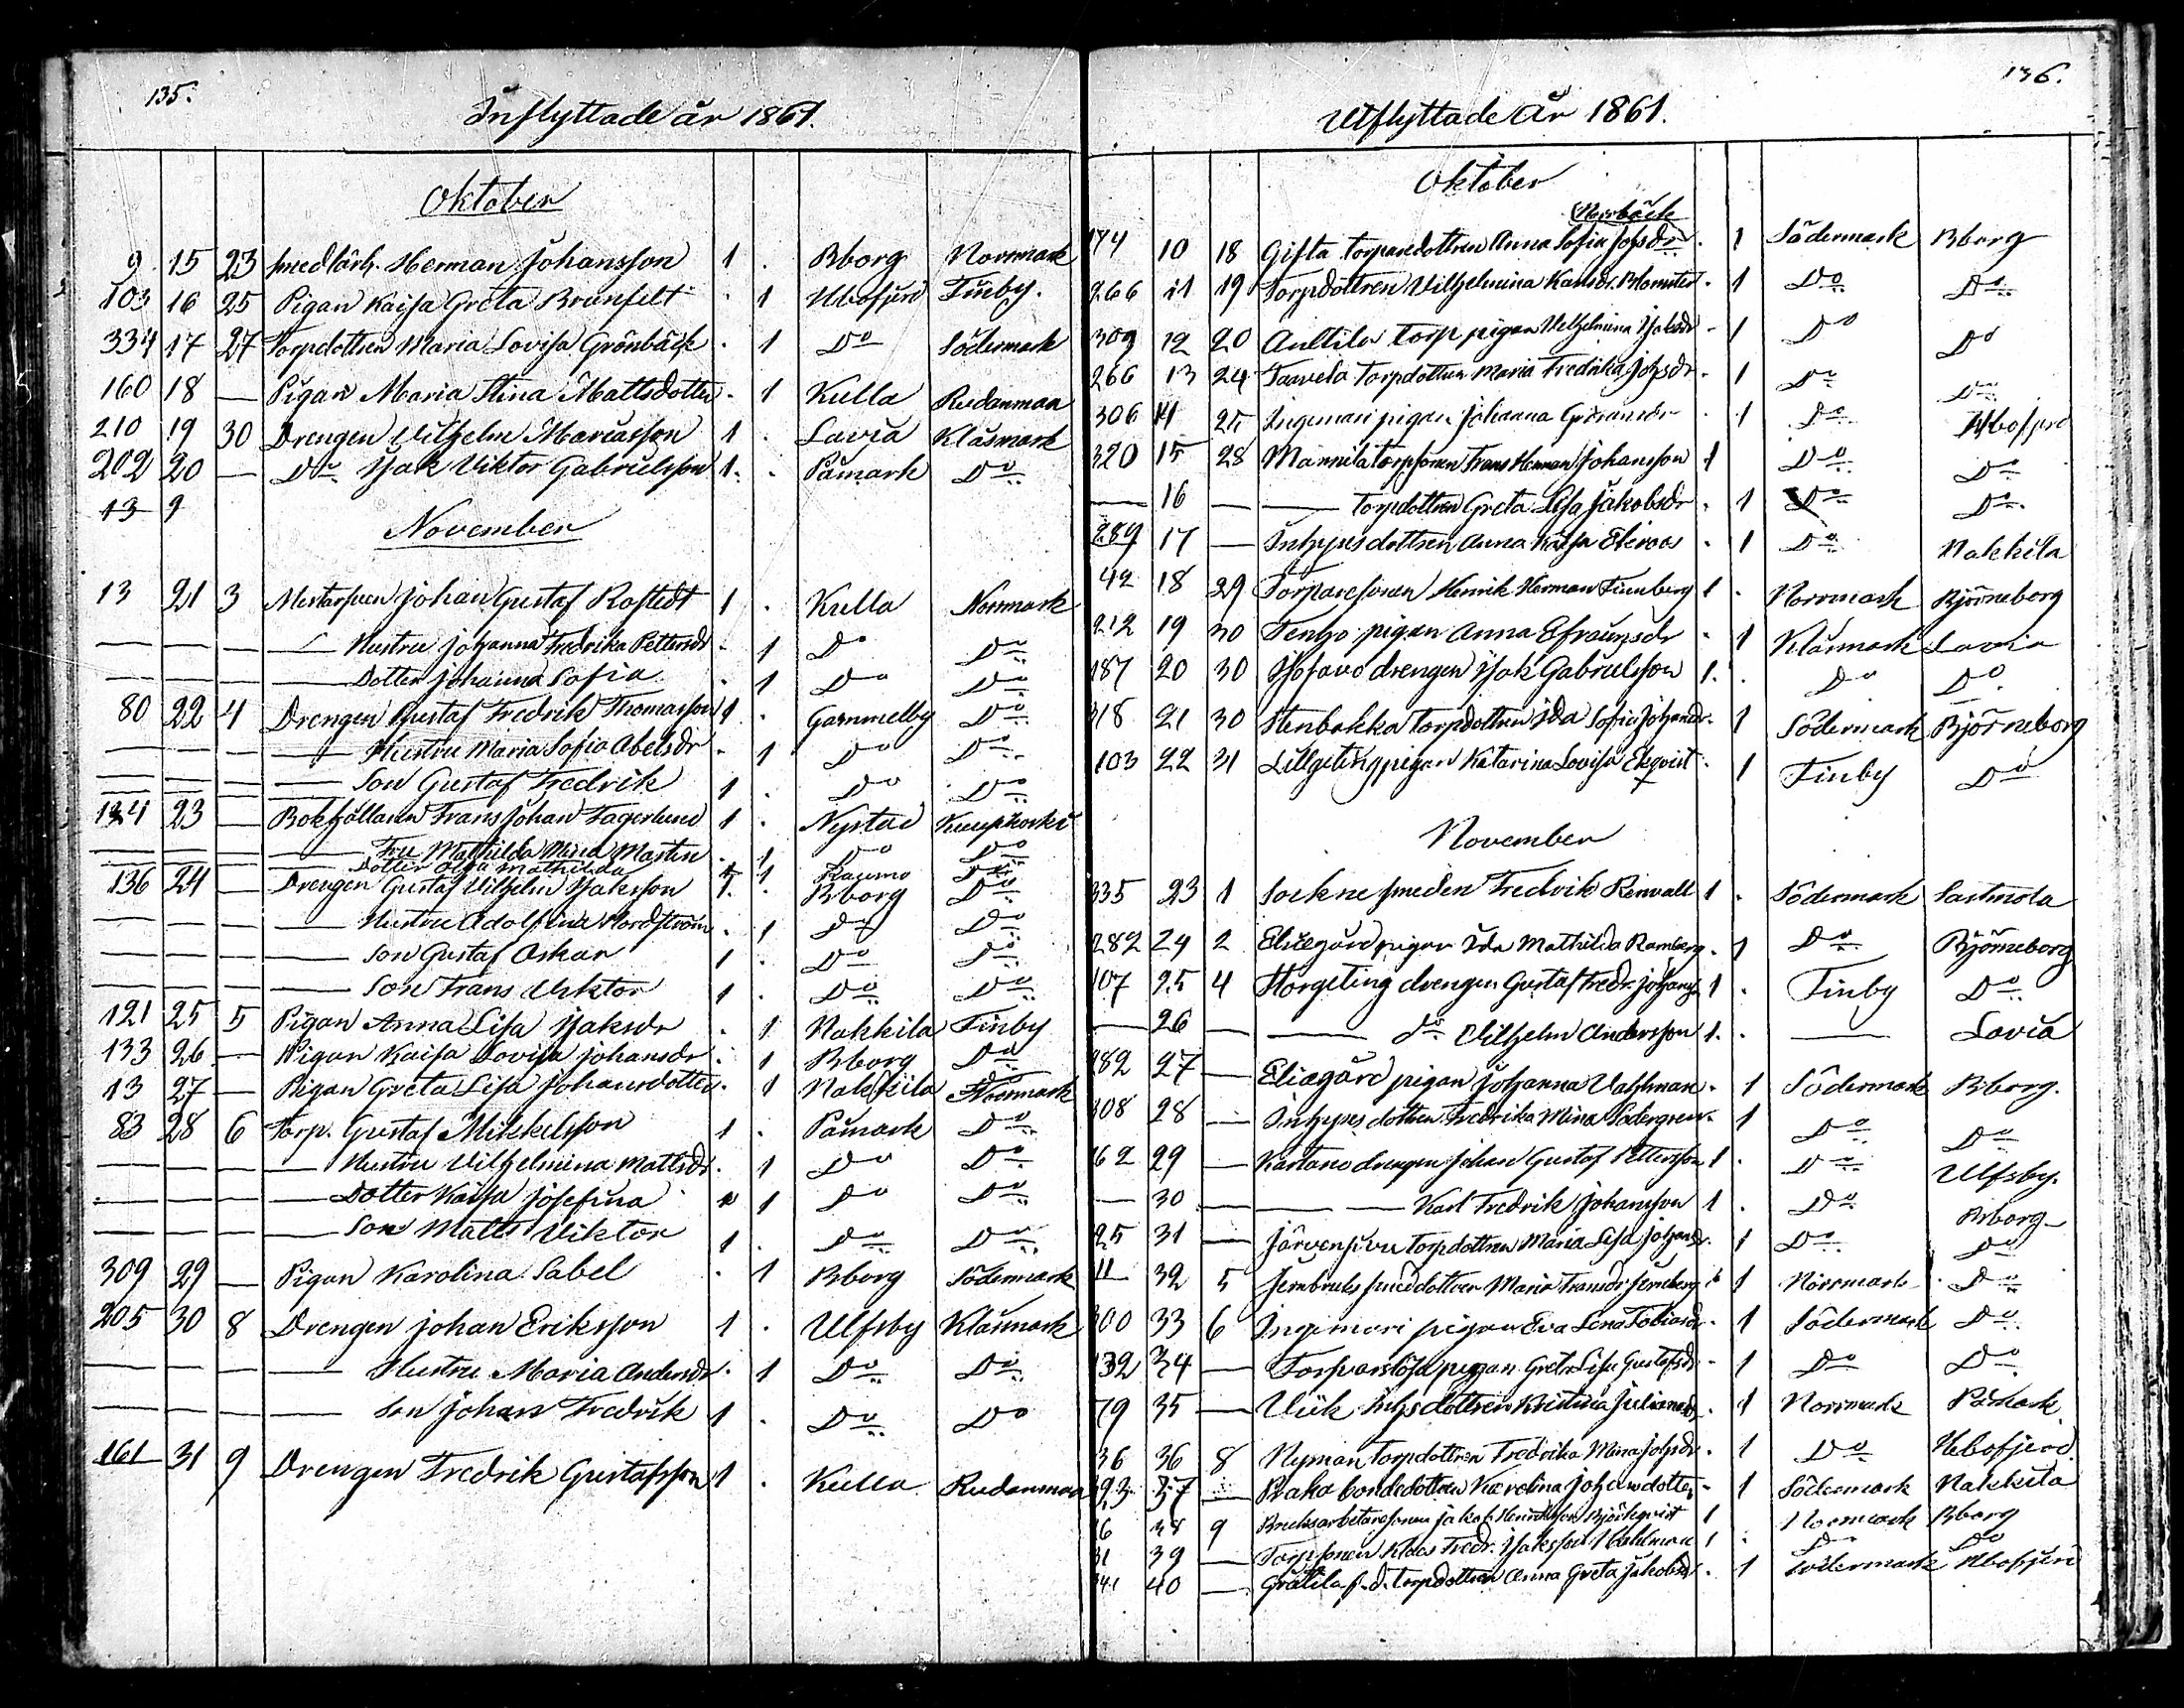 135.
Inflyttade år 1861.
Oktober
9 15 23 smedlärl. Herman Johansson 1 . Bborg Norrmark
103 16 25 Pigan Kajsa Greta Brunfelt . 1 Hvbofjerd Finby.
334 17 27 Torpdottren Maria Lovisa Grönbäck . 1 Do Södermark
160 18 — Pigan Maria Stina Mattsdotter . 1 Kulla Rudanmaa
210 19 30 Drengen Vilhelm Mariasson 1 . Lavia Klåsmark
202 20 — Do Isak Viktor Gabrielsson 1 . Påmark Do
13 9
November
13 21 3 Johan Gustaf Rostedt 1 . Kulla Norrmark
— — — — Hustru Johanna Fredrika Pettersdr . 1 Do Do
— — — — Dotter Johanna Sofia . 1 Do Do
80 22 4 Drengen Gustaf Fredrik Thomasson 1 . Gammelby Do
— — — — Hustru Maria Sofia Abelsdr . 1 Do Do
— — — — Son Gustaf Fredrik 1 . Do Do
134 23 — Bokhållaren Frans Johan Fagerlund 1 . Nystad
— — — — Fru Mathilda Maria Martin . 1 Do Do
— — — — Dotter Olga Mathilda 1 Raumo Do
136 24 — Drengen Gustaf Vilhelm Isaksson 1 . Bborg Do
— — — — Hustru Adolfina Nordström . 1 Do Do
— — — — Son Gustaf Oskar 1 . Do Do
— — — — Son Frans Viktor 1 . Do Do
121 25 5 Pigan Anna Lisa Isaksdr . 1 Nakkila Finby
133 26 — Pigan Kaisa Lovisa Johansdr . 1 Bborg Do
13 27 — Pigan Greta Lisa Johansdotter . 1 Nakkila Norrmark
83 28 6 Torp. Gustaf Mikkelsson 1 . Påmark Do
— — — — Hustru Vilhelmina Mattsdr . 1 Do Do
— — — — Dotter Kaisa Josefina 1 Do Do
— — — — Son Matts Viktor 1 . Do Do
309 29 — Pigan Karolina Sabel . 1 Bborg Södermark
205 30 8 Drengen Johan Eriksson 1 . Ulfsby Klåsmark
— — — — Hustru Maria Andersdr . 1 Do Do
— — — — Son Johan Fredrik 1 . Do Do
161 31 9 Drengen Fredrik Gustafsson 1 . Kulla Rudanmaa
136.
Utflyttade År 1861.
Oktober
Norrbäck
174 10 18 Gifta torparedottren Anna Sofia Johsdr . 1 Södermark Bborg
266 11 19 Torpdottren Vilhelmina Karlsdr Blomster . 1 Do Do
309 12 20 Anttila torp pigan Vilhelmina Isaksdr . 1 Do Do
266 13 24 Taavela torpdottren Maria Fredrika Johsdr . 1 Do Do
306 14 25 Ingemari pigan Johanna Göransdr . 1 Do Hvbofjerd
320 15 28 Mannila torpsonen Frans Herman Johansson 1 Do Do
— 16 — — torpdottren Greta Lisa Jakobsdr . 1 Do Do
289 17 — Inhysesdottren Anna Kajsa Ekroos . 1 Do Nakkila
42 18 29 Torparesonen Henrik Herman Finnberg 1 . Norrmark Björneborg
212 19 30 Tenho pigan Anna Efraimsdr . 1 Klåsmark Lavia
187 20 30 Isosavo drengen Isak Gabrielsson 1 . Do Do
318 21 30 Stenbakka torpdottren Ida Sofia Johansdr . 1 Södermark Björneborg
103 22 31 Lillgeting pigan Katarina Lovisa Ekqvist . 1 Finby Do
November
335 23 1 Sockne smeden Fredrik Renvall 1 . Södermark Sastmola
282 24 2 Eliægård pigan Ida Mathilda Ramberg . 1 Do Björneborg
107 25 4 Storgeting drengen Gustaf Fredr. Johanss. 1 . Finby Do
— 26 — — do Vilhelm Andersson 1 . — Lavia
282 27 — Eliægård pigan Johanna Vahlman . 1 Södermark Bborg.
308 28 — Inhyses dottren Fredrika Mina Södergren . 1 Do Do
162 29 — Kartano drengen Johan Gustaf Pettersson 1 . Do Ulfsby.
— 30 — — Karl Fredrik Johansson 1 . Do Bborg
25 31 — Järvensuu torpdottren Maria Lisa Johansdr . 1 Do Do
11 32 5 Jernbruks smeddottren Maria Fransdr Jernberg 1 Norrmark Do
300 33 6 Ingemari pigan Eva Lena Tobiasdr . 1 Södermark Do
132 34 — pigan Greta Lisa Gustafsdr . 1 Do Do
79 35 — Viik Inhsdottren Kristina Juliana . 1 Norrmark Påmark
36 36 8 Nyman torpdottren Fredrika Mina Johsdr . 1 Do Hvbofjerd
293 37 — Raka bondedottren Karolina Johansdotter . 1 Södermark Nakkila
6 38 9 Bruksarbetaresonen Jakob Henriksson Björkqvist 1 Norrmark Bborg
31 39 — Torpsonen Klas Fredr. Isaksson Vahlman 1 . Do Do
341 40 — torpdottren Anna Greta Jakobsdr . 1 Södermark Hvbofjerd